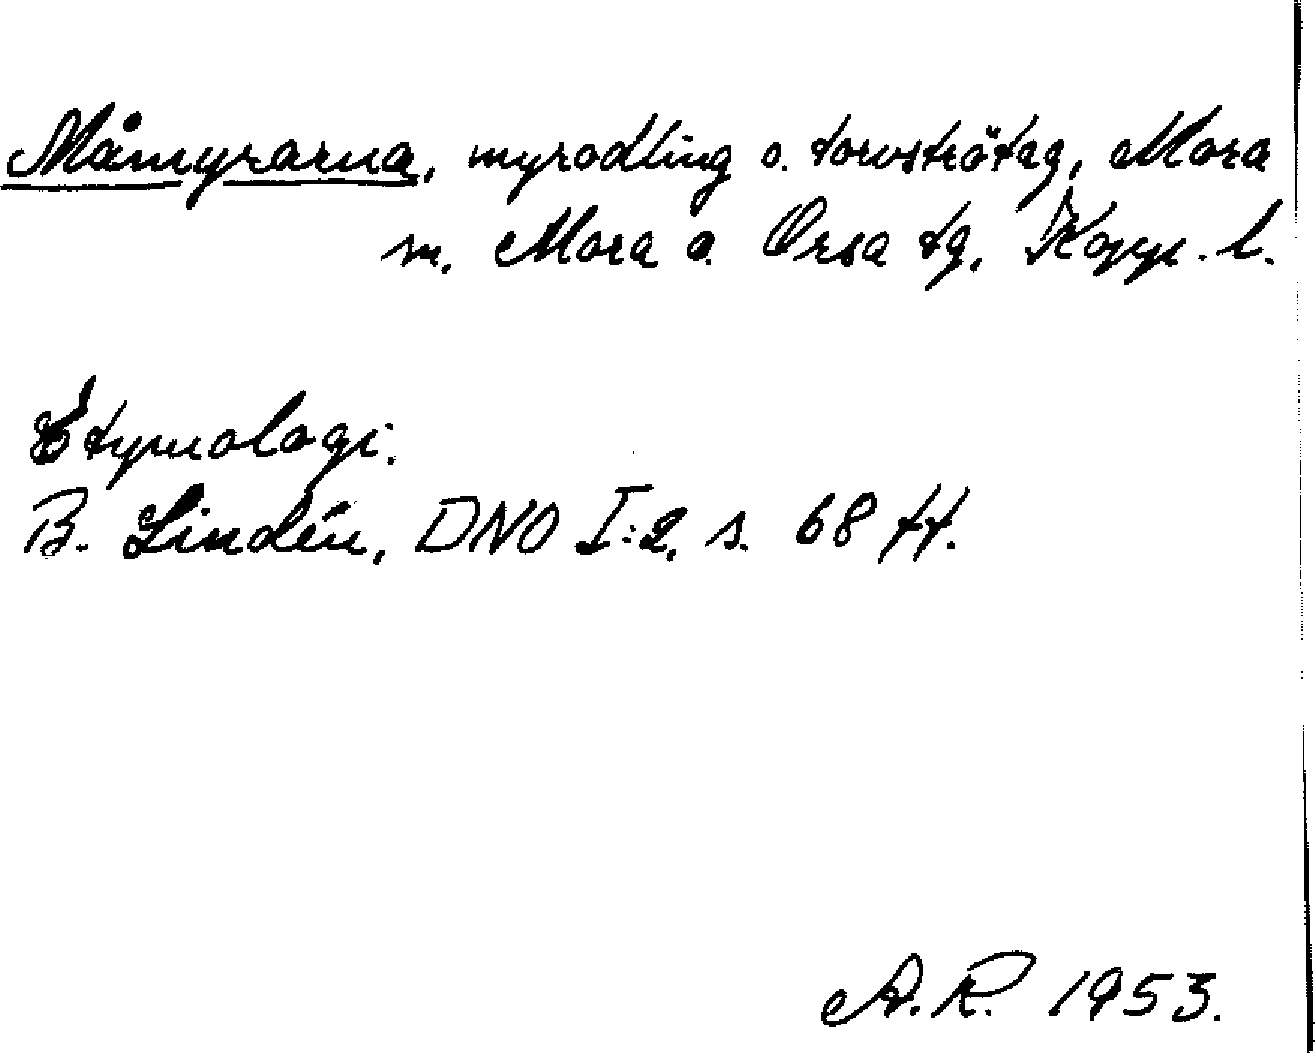 Måmyrarna, myrodling o. torvströtag, Mora
sn, Mora o. Orsa tg, Kopp. l.
Etymologi.
B. Lindén, DNO I:2, s. 68 ff.
A.R. 1953.